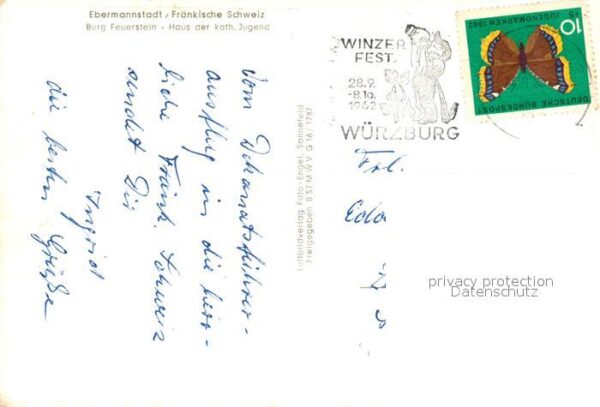 Ebermannstadt / Fränkische Schweiz
Burg Feuerstein - Haus der kath. Jugend
Vom Dekanatsführer-
ausflug in die herr-
liche Fränk. Schweiz
sendet Dir
die besten Grüße
Ingrid
Luftbildverlag Foto-Engel, Sonnefeld
Freigegeben B STMWV G 16 / 1787
WINZER
FEST
28.9.
-8.10.
1962
WÜRZBURG
10
+5 JUGENDMARKEN 1962
DEUTSCHE BUNDESPOST
Frl.
Eda
privacy protection
Datenschutz